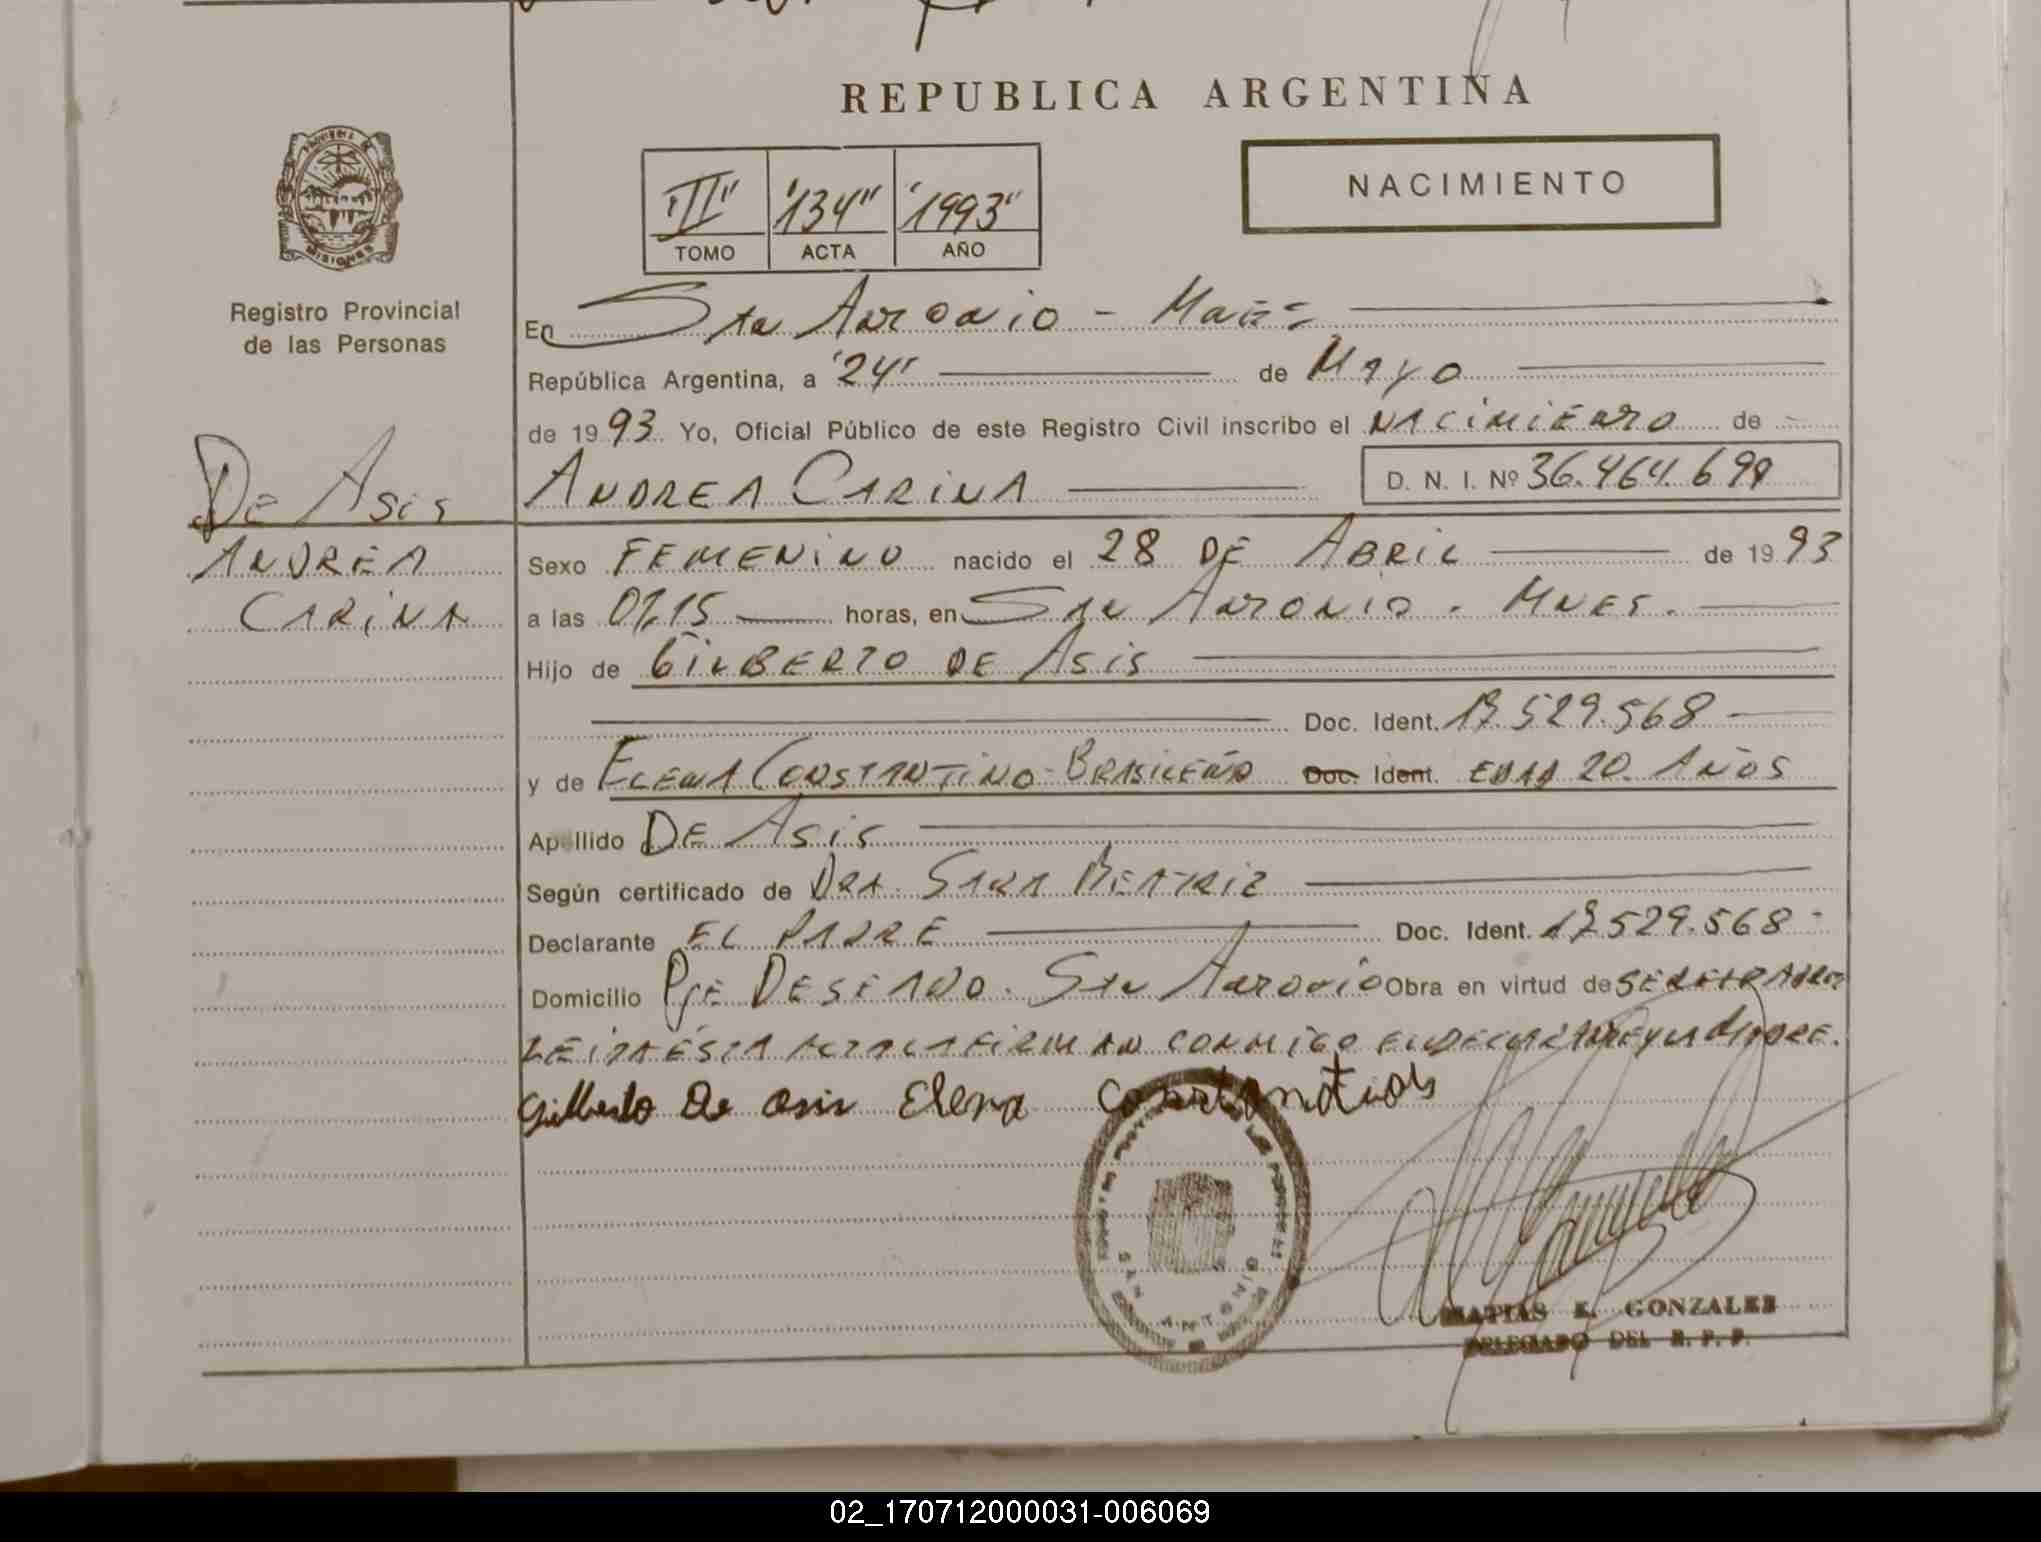 REPUBLICA ARGENTINA
PROVINCIA DE
MISIONES
Registro Provincial
de las Personas
"III" "134" "1993"
TOMO ACTA AÑO
NACIMIENTO
En San Antonio - Mnes
República Argentina, a "24" de Mayo
de 1993 Yo, Oficial Público de este Registro Civil inscribo el NACIMIENTO de
ANDREA CARINA D. N. I. Nº 36.464.691
DE ASIS
ANDREA
CARINA
Sexo FEMENINO nacido el 28 DE ABRIL de 1993
a las horas, en SAN ANTONIO - MNES.
Hijo de GILBERTO DE ASIS
Doc. Ident. 529.568
y de ELENA CONSTANTINO - BRASILEÑO Doc. Ident. EDAD 20 AÑOS
Apellido DE ASIS
Según certificado de DRA. SARA BEATRIZ
Declarante EL PADRE Doc. Ident. 529.568
Domicilio PJE DESEADO - SAN ANTONIO Obra en virtud de SER EL PADRE
LEIDA ÉSTA ACTA LA FIRMAN CONMIGO EL DECLARANTE Y LA MADRE.
Gilberto De asis Elena
SAN ANTONIO
MATIAS E. GONZALEZ
DELEGADO DEL R. P. P.
02_170712000031-006069